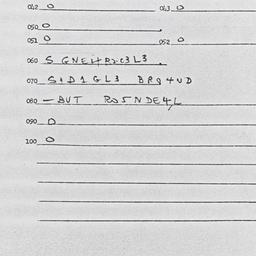 042 O 043 O
050 O
051 O 052 O
060 S GNE4R2C3L3.
070 S+D1GL3 BR94UD
080 - BUT R05NDE4L
090 O
100 O